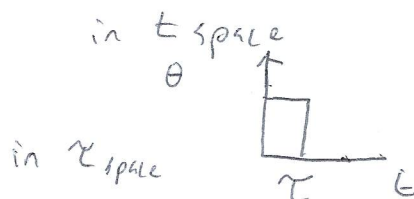 in t space
θ
in τ space
τ t